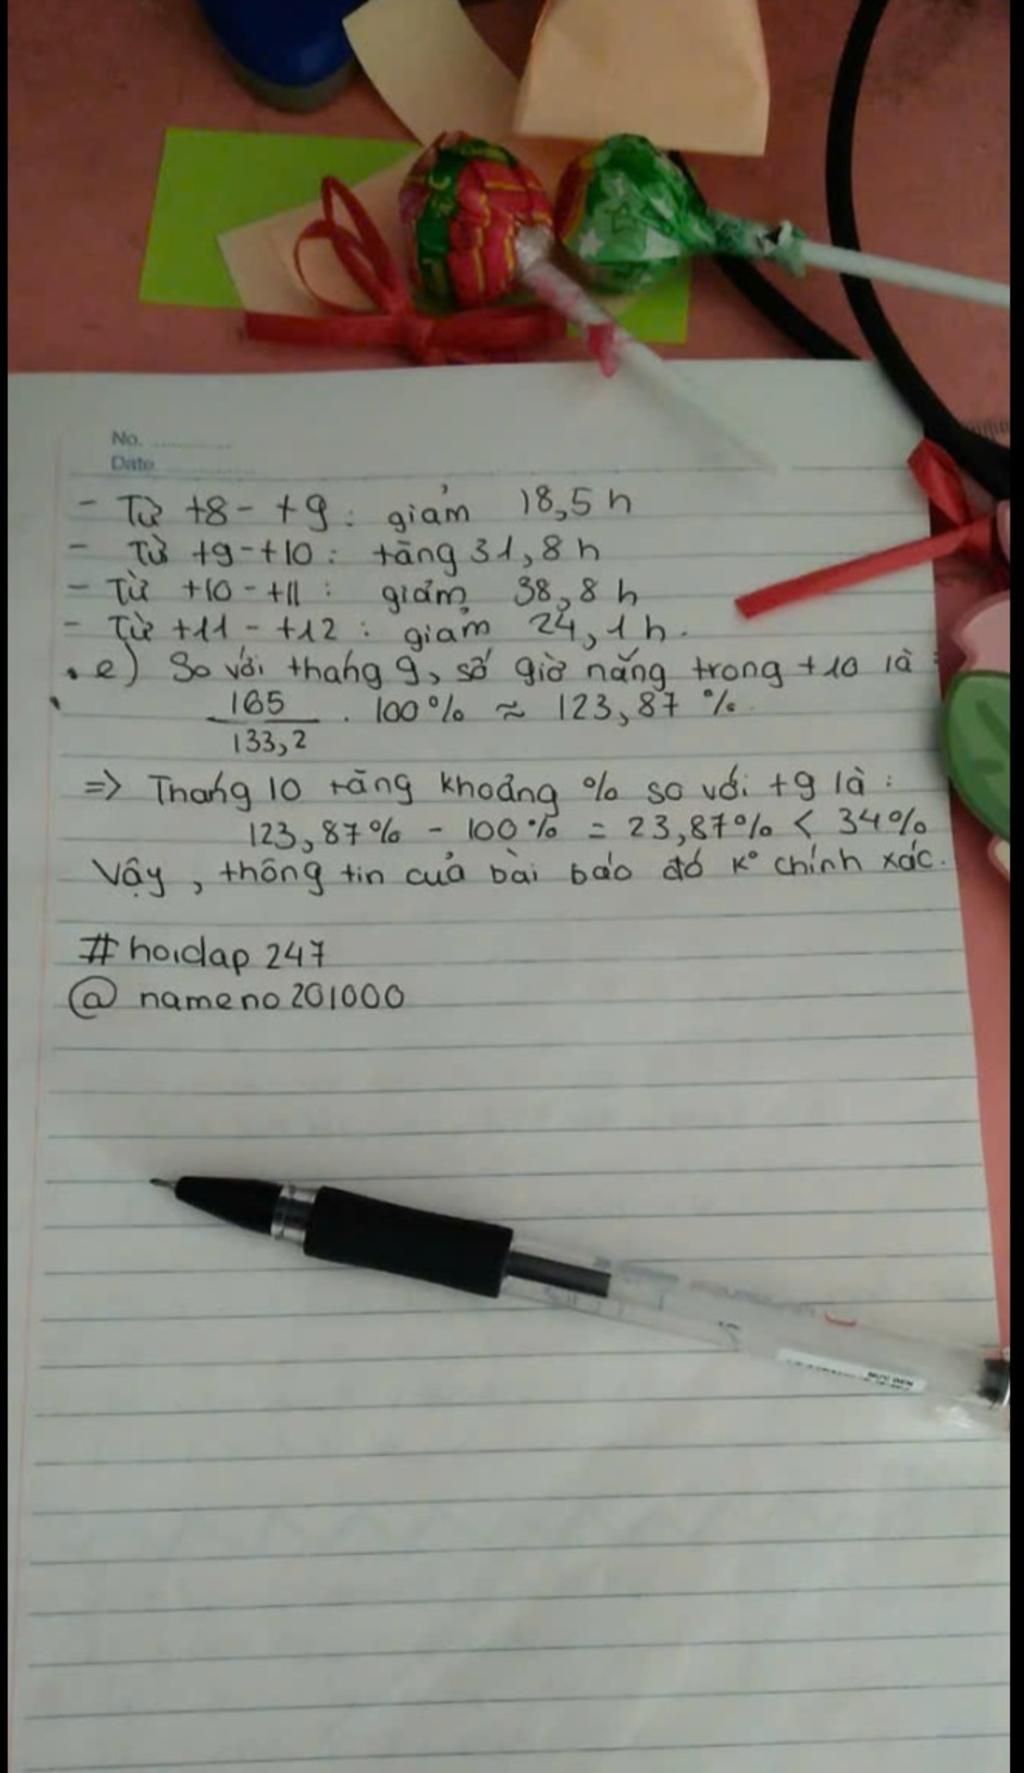 No.
Date
- Từ t8 - t9 : giảm 18,5 h
- Từ t9 - t10 : tăng 31,8 h
- Từ t10 - t11 : giảm 38,8 h
- Từ t11 - t12 : giảm 24,1 h.
. e) So với tháng 9, số giờ nắng trong t10 là :
165
133,2
. 100% ≈ 123,87 %.
=> Tháng 10 tăng khoảng % so với t9 là :
123,87% - 100% = 23,87% < 34%
Vậy, thông tin của bài báo đó k° chính xác.
# hoidap 247
@ nameno201000
MỰC ĐEN